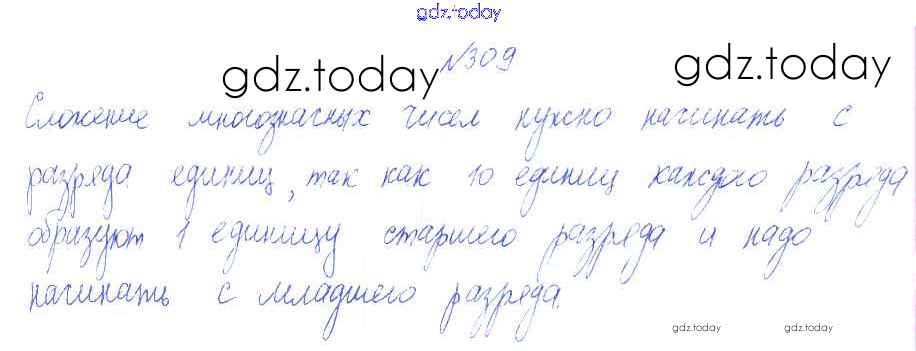 gdz.today
№309
gdz.today gdz.today
Сложение многозначных чисел нужно начинать с
разряда единиц, так как 10 единиц каждого разряда
образуют 1 единицу старшего разряда и надо
начинать с младшего разряда.
gdz.today gdz.today